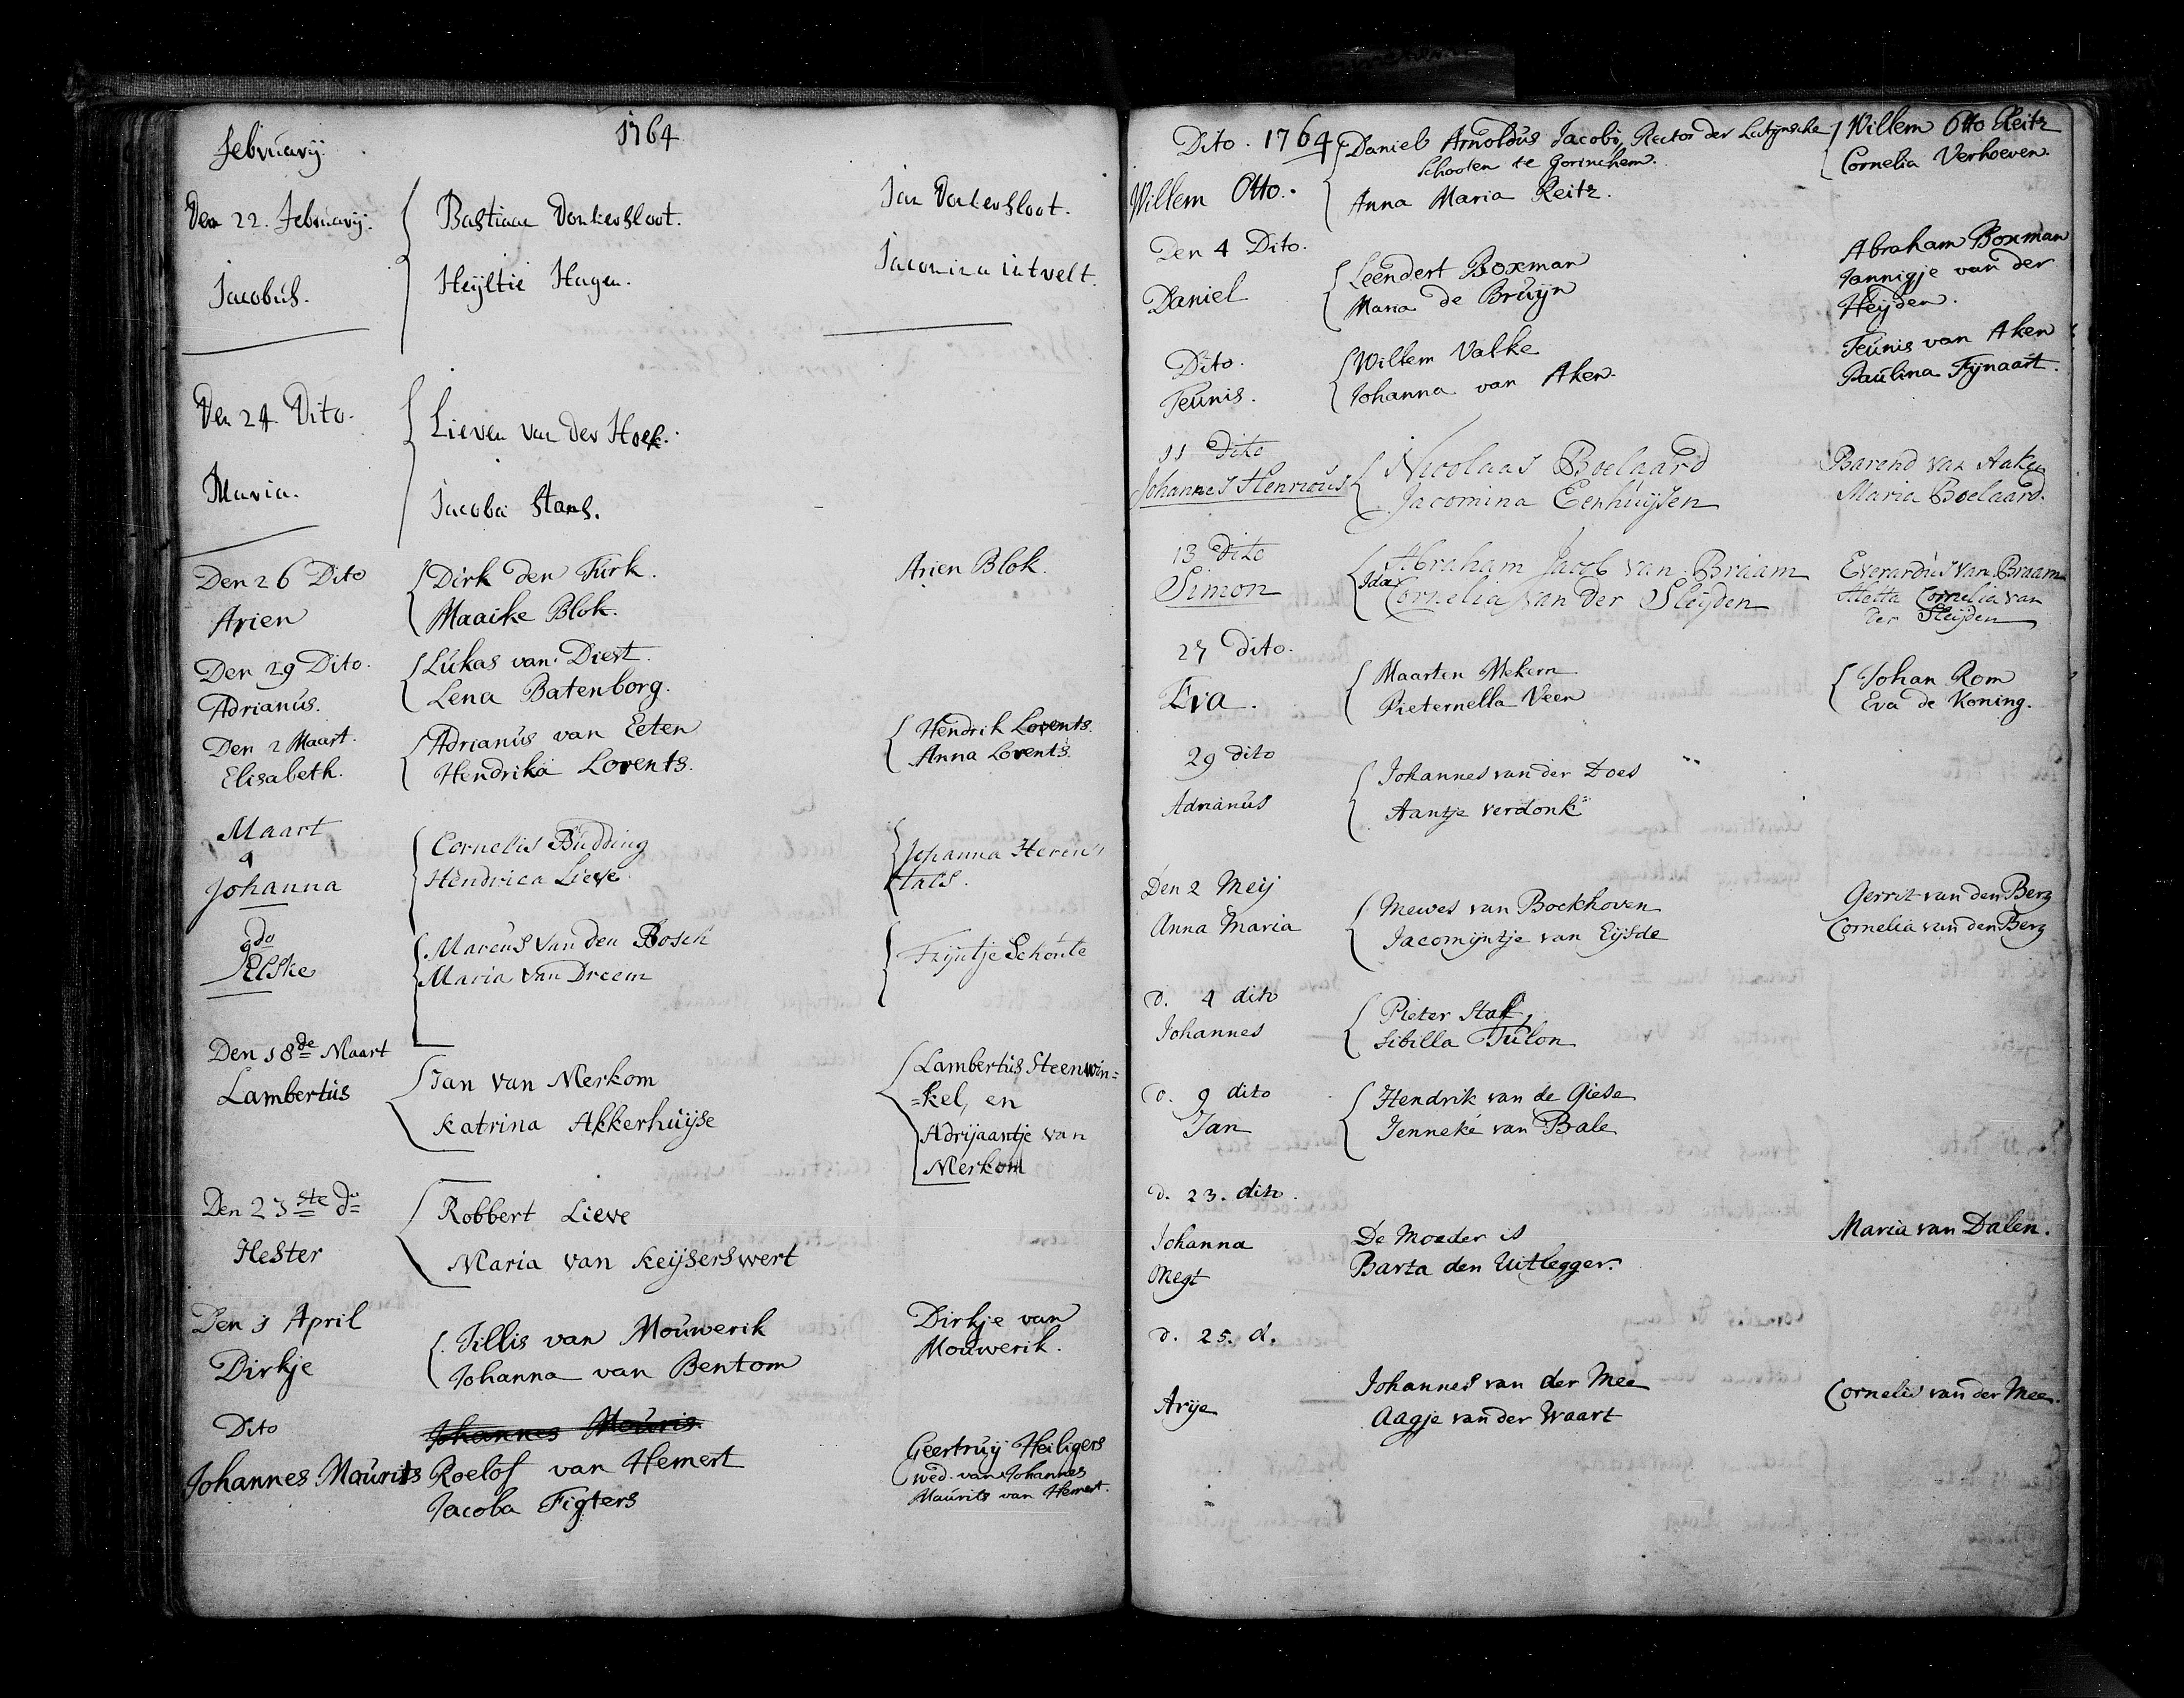 Februarij.
1764
Den 22. Februarij.
Bastiaan Donkersloot.
Jan Donkersloot.
Jacobus.
Heijltie Hagen.
Jacomina uitvelt.
Den 24. Dito.
Lieven van der Hoek.
Maria.
Jacoba Stans.
Den 26 Dito
Dirk den Turk.
Arien Blok.
Arien
Maaike Blok.
Den 29 Dito.
Lukas van Diest.
Adrianus.
Lena Batenborg.
Den 2 Maart.
Adrianus van Eeten
Hendrik Lorents.
Elisabeth.
Hendrika Lorents.
Anna Lorents.
Maart
9
Cornelis Budding
Johanna Heren
Johanna
Hendrica Lieve
tals.
9do
Marcus van den Bosch
Trijntje Schoute
Elske
Maria van Dreem
Den 18de Maart
Jan van Merkom
Lambertus Steenwin=
Lambertus
=kel, en
Katrina Akkerhuijse
Adrijaantje van
Merkom
Den 23ste do
Robbert Lieve
Hester
Maria van Keijserswert
Den 3 April
Jillis van Mouwerik
Dirkje van
Dirkje
Johanna van Bentom
Mouwerik.
Dito
Johannes Mouris
Geertruij Heiligers
Johannes Mourits
Roelof van Hemert
wed. van Johannes
Jacoba Figters
Maurits van Hemert.
Dito. 1764
Daniel Arnoldus Jacobi, Rector der Latijnsche
Willem Otto Reitz
Schoolen te Gorinchem.
Cornelia Verhoeven.
Willem Otto.
Anna Maria Reitz.
Den 4 Dito.
Leendert Boxman
Abraham Boxman
Daniel
Maria de Bruijn
Jannigje van der
Heijden.
Dito.
Willem Valke
Teunis van Aken
Teunis.
Johanna van Aken.
Paulina Fijnaart.
11 Dito
Nicolaas Boelaard
Barend van Aaken
Johannes Henricus
Jacomina Eenhuijsen
Maria Boelaard.
13 Dito
Abraham Jacob van Braam
Everardus van Braam
Simon
Ida Cornelia van der Sleijden
Aletta Cornelia van
der Sleijden
27 dito.
Maarten Mekern
Johan Rom
Eva.
Pieternella Veen
Eva de Koning.
29 dito
Johannes van der Does
Adrianus
Aantje verdonk
Den 2 Meij
Mewes van Bockhoven
Gerrit van den Berg
Anna Maria
Jacomijntje van Eijsde
Cornelia van den Berg
d. 4 dito
Pieter Staf,
Johannes
Sibilla Tulon
d. 9 dito
Hendrik van de Giese
Jan
Jenneke van Bale
d. 23. dito.
Johanna
De Moeder is
Maria van Dalen.
Megt
Barta den Uitlegger.
d. 25. d.
Johannes van der Mee
Cornelis van der Mee.
Arije
Aagje van der Waart